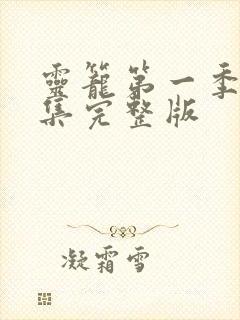 靈籠第一季
集完整版
凝霜雪